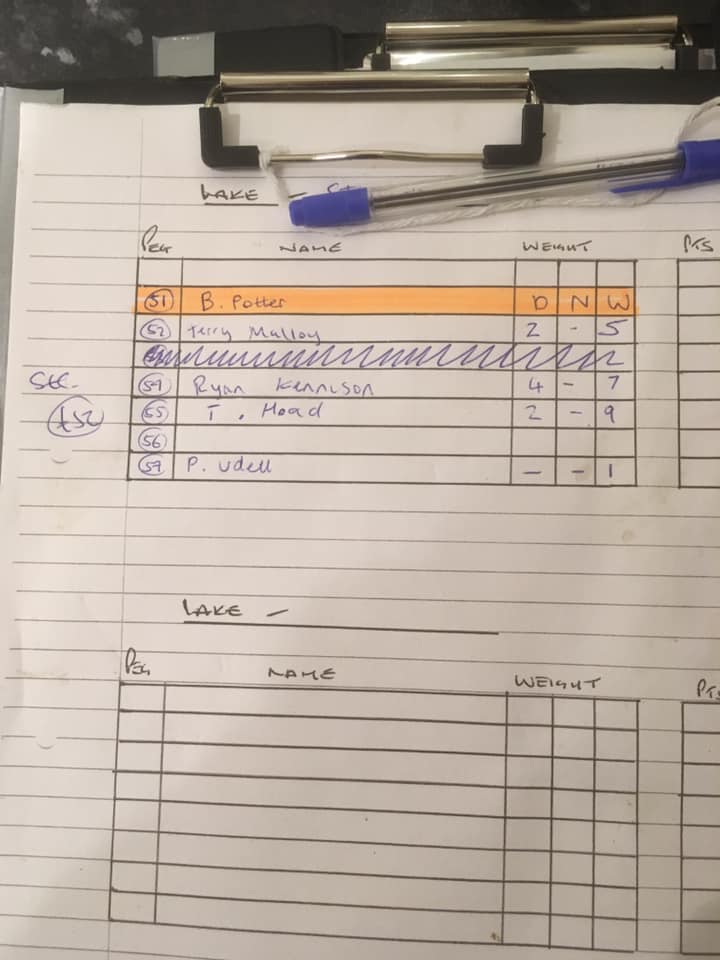 LAKE -
PEG NAME WEIGHT PTS
51 B. Potter D N W
52 Terry Malloy 2 - 5
Ryan Kennison 4 - 7
£52 55 T. Hoad 2 - 9
56
59 P. Udell - - 1
LAKE -
PEG NAME WEIGHT PTS